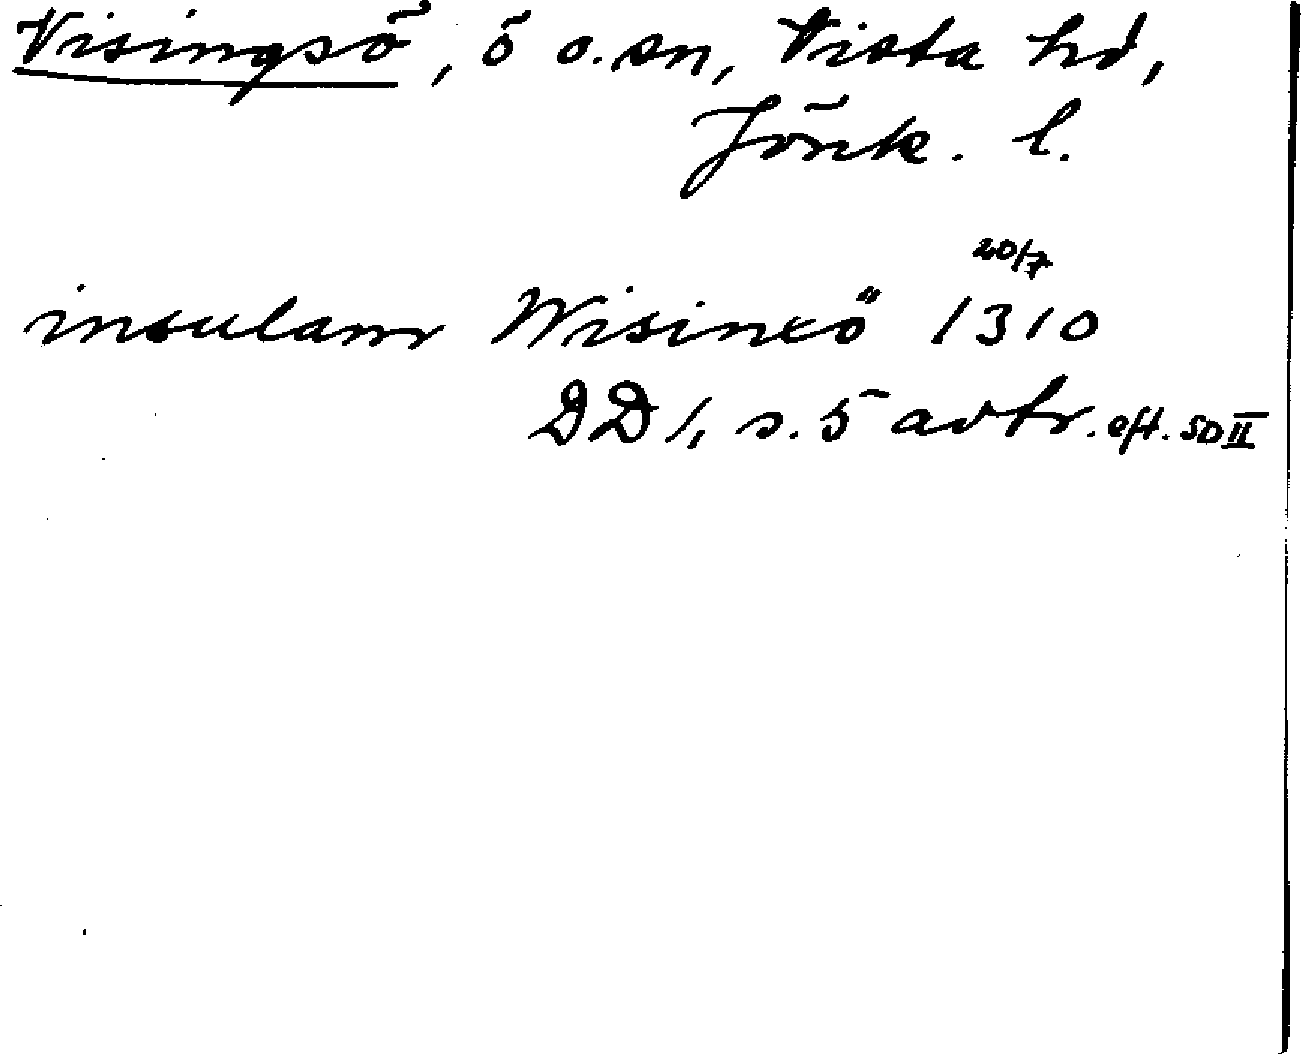 Visingsö, ö o. sn, Vista hd,
Jönk. l.
20/7
insulam Wisinxö 1310
DD 1, s. 5 avtr. eft. SD II